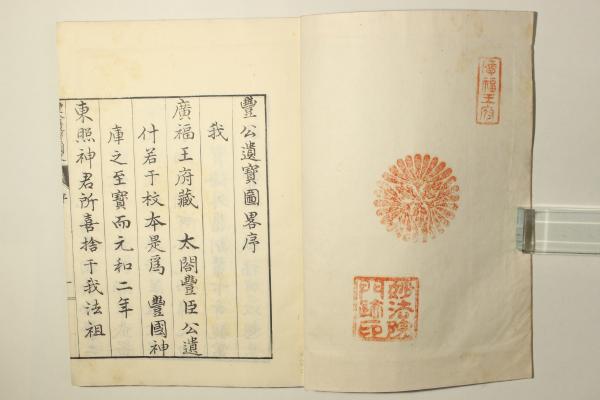 廣福王府
妙法院
門跡印
豐公遺寶圖畧序
我
廣福王府藏　太閤豐臣公遺
什若于校本是爲　豐國神
庫之至寶而元和二年
東照神君所喜捨于我法祖